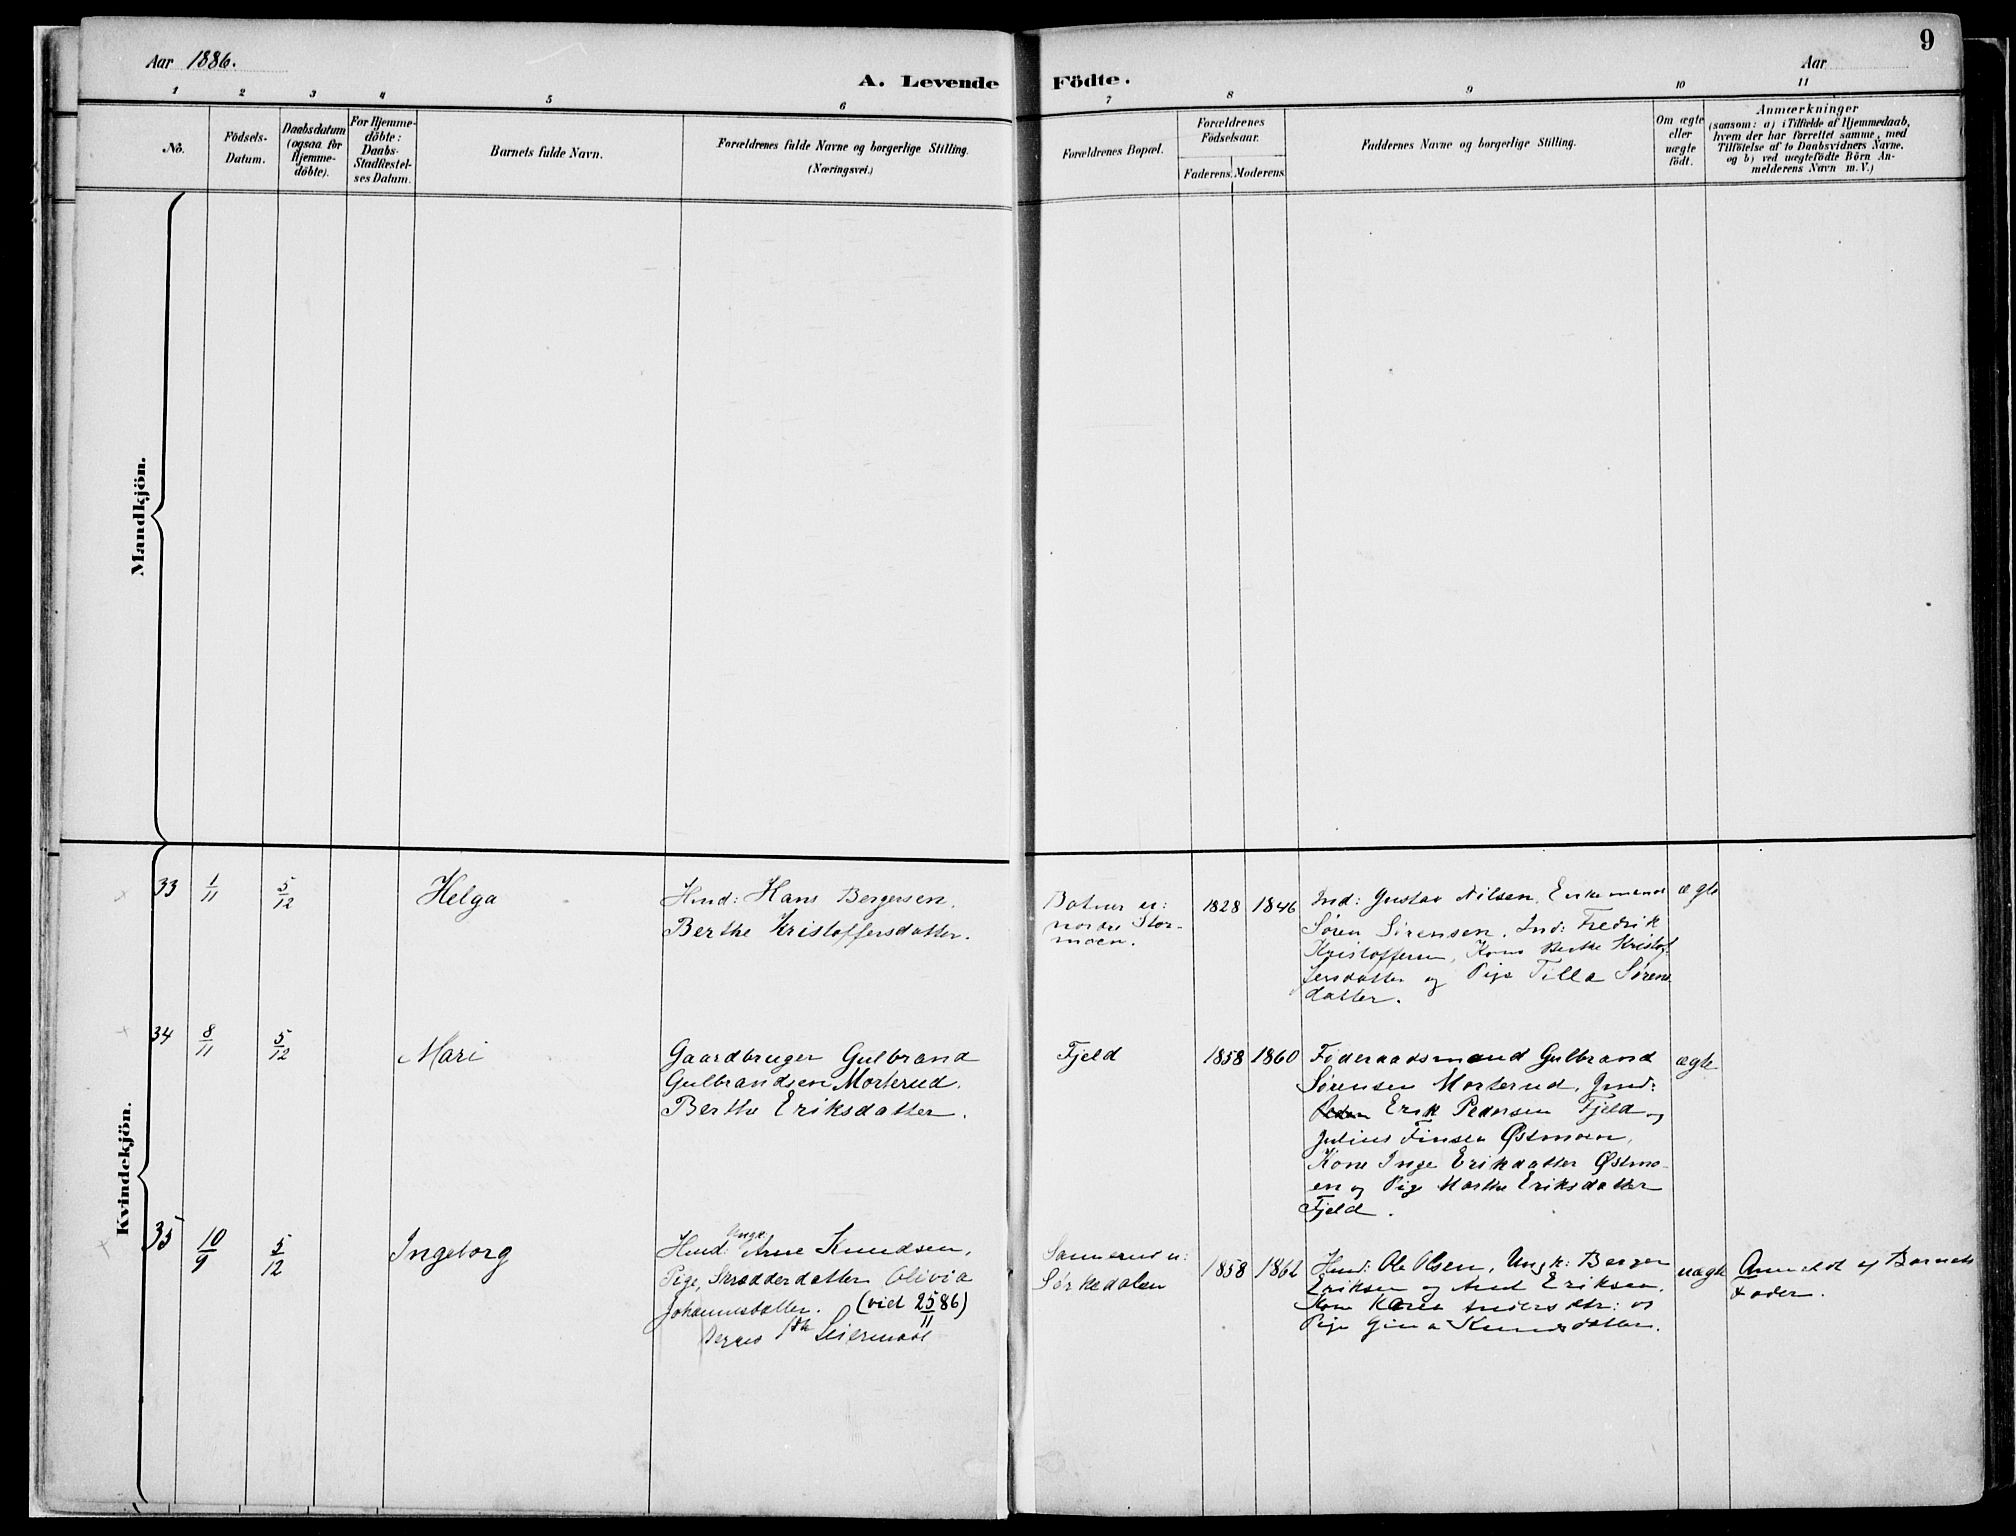 Aar 1886.
A. Levende Födte.
Aar
9
1 2 3 4 5 6 7 8 9 10 11
No.
Födsels-
Datum.
Daabsdatum
(ogsaa for
Hjemme-
döbte).
For Hjemme-
döbte:
Daabs-
Stadfæstel-
ses Datum.
Barnets fulde Navn.
Forældrenes fulde Navne og borgerlige Stilling.
(Næringsvei.)
Forældrenes Bopæl.
Forældrenes
Födselsaar.
Faderens. Moderens.
Faddernes Navne og borgerlige Stilling.
Om ægte
eller
uægte
födt.
Anmærkninger
(saasom: a) i Tilfælde af Hjemmedaab,
hvem der har forrettet samme, med
Tilföielse af to Daabsvidners Navne,
og b) ved uægtefödte Börn An-
melderens Navn m.V.)
Mandkjön.
Kvindekjön.
33 1/11 5/12 Helga
Hans Bergersen.
Berthe Kristoffersdatter.
nordre Stor-
moen.
1828 1846
Ind: Gustav Nilsen, Enkemand
Søren Sørensen, Ind: Fredrik
Kristoffersen, Kone Berthe Kristof-
fersdatter og Pige Tilla Sørens-
datter.
ægte
34 8/11 5/12 Mari
Gaardbruger Gulbrand
Gulbrandsen Morterud.
Berthe Eriksdatter.
Fjeld
1858 1860
Föderaadsmand Gulbrand
Sørensen Morterud,
Erik Pedersen Fjeld og
Julius Finsen Østmoen,
Kone Inge Eriksdatter Østmo-
en og Pige Marthe Eriksdatter
Fjeld.
ægte
35 10/9 5/12 Ingeborg
Arne Knudsen,
Pige, Skrædderdatter Olivia
Johannesdatter. (vied 25/11 86)
Begges 1ste Leiermaal
Sørkedalen
1858 1862
Ole Olsen, Ungk: Berger
Eriksen og Eriksen,
Kone Karen Andersdtr: og
Pige Gina Knudsdatter.
uægte
Anmeldt af Barnets
Fader.